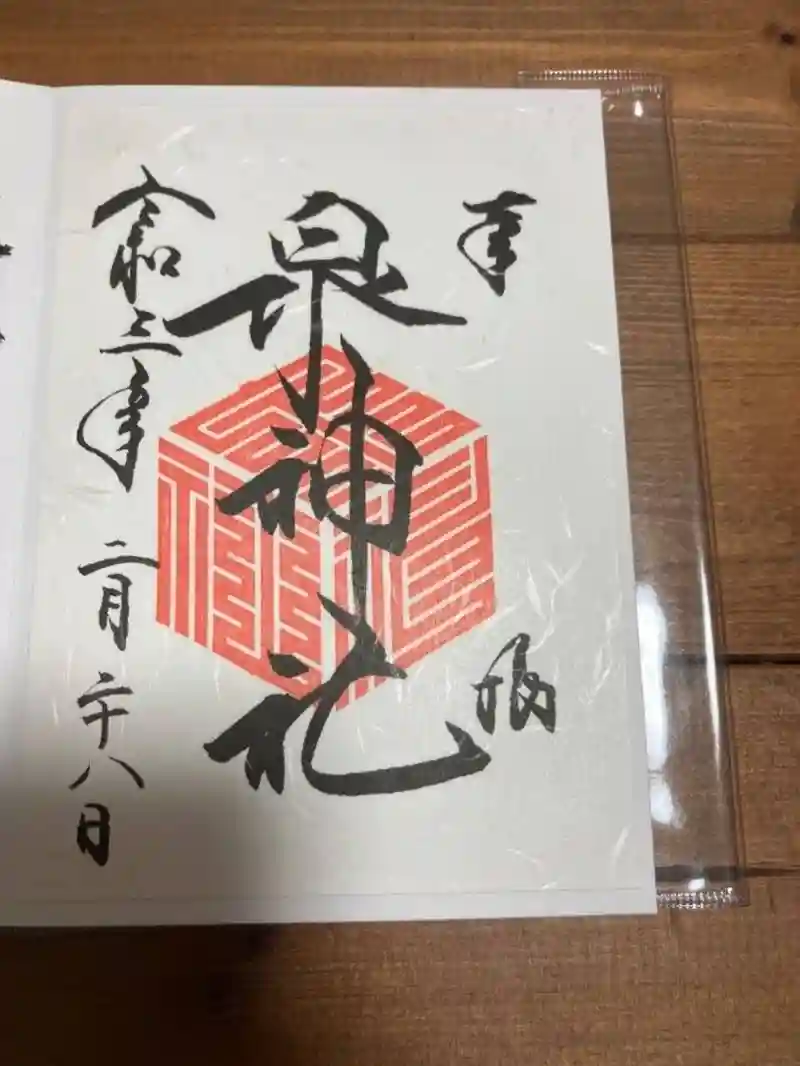 奉拝
泉神社
令和三年 二月二十八日